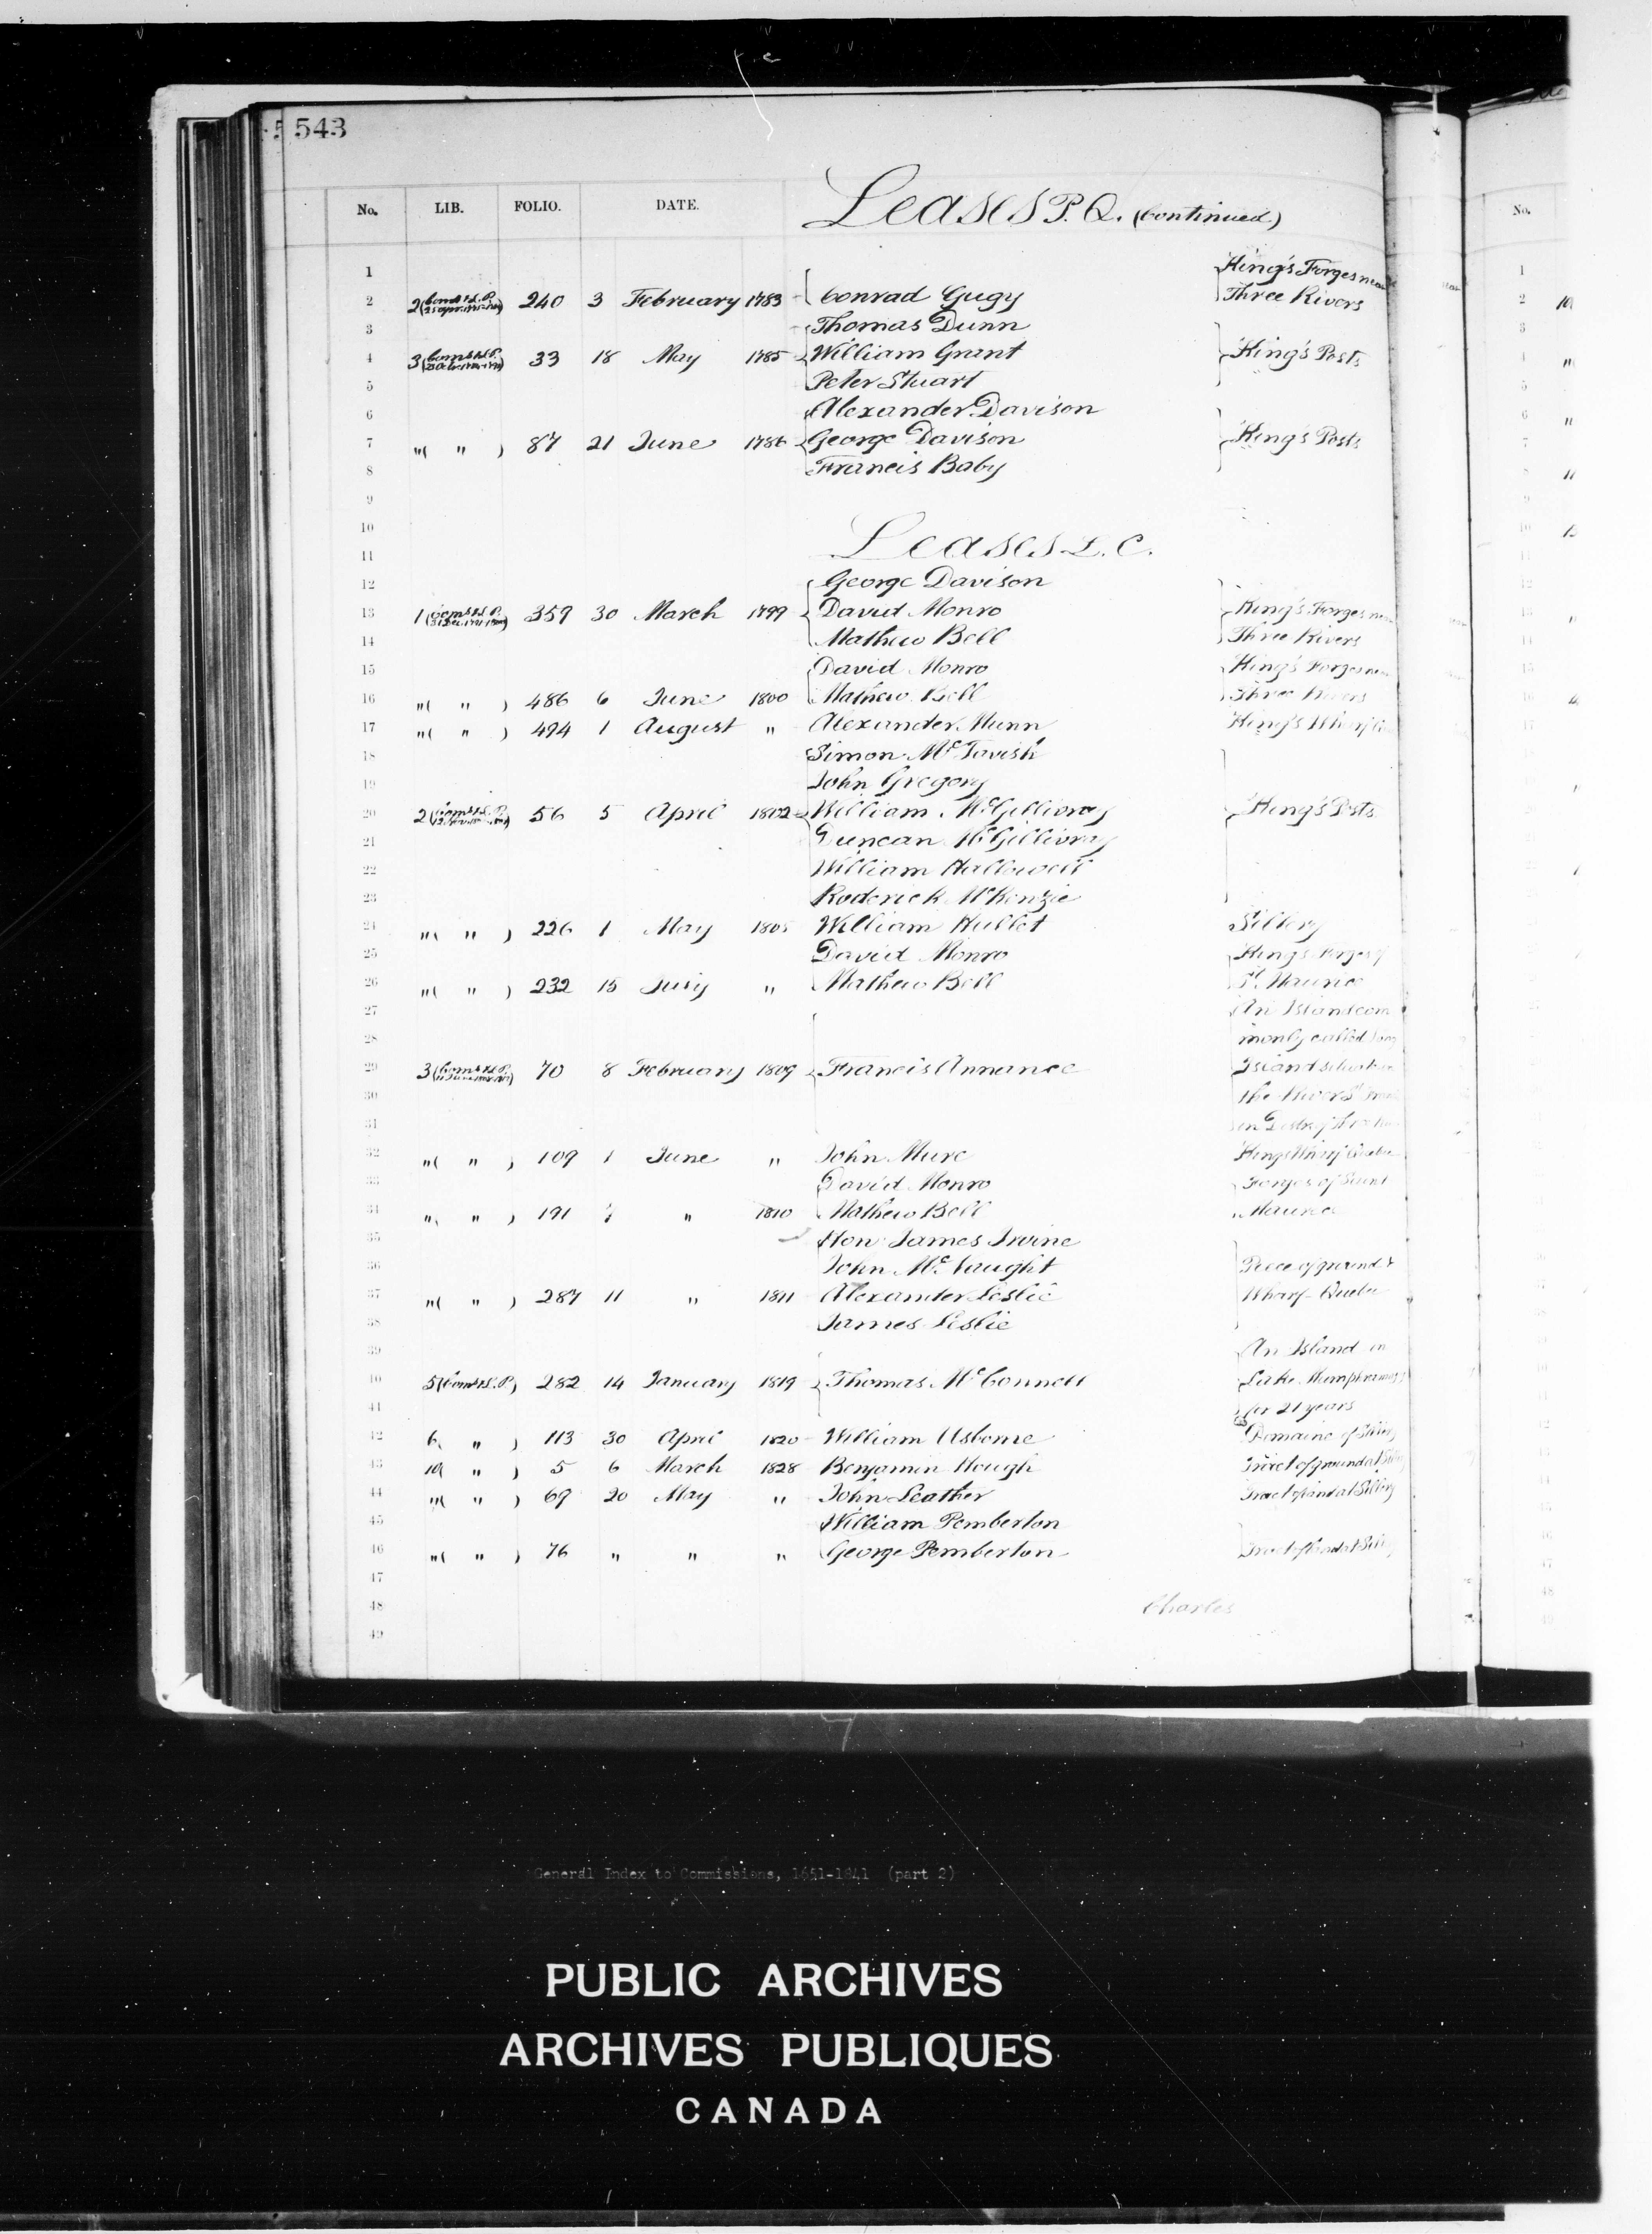 543
No. LIB. FOLIO. DATE. Leases P.Q. (Continued)
1 King's Forges near
2 2 240 3 February 1783 Conrad Gugy Three Rivers
3 Thomas Dunn
4 3 33 18 May 1785 William Grant King's Posts
5 Peter Stuart
6 Alexander Davison
7 "( " ) 87 21 June 1786 George Davison King's Posts
8 Francis Baby
9
10
11 Leases L.C.
12 George Davison
13 1 359 30 March 1799 David Monro King's Forges near
14 Mathew Bell Three Rivers
15 David Monro King's Forges near
16 "( " ) 486 6 June 1800 Mathew Bell Three Rivers
17 "( " ) 494 1 August " Alexander Munn King's Wharf
18 Simon McTavish
19 John Gregory
20 2 56 5 April 1802 William McGillivray King's Posts
21 Duncan McGillivray
22 William Hallowell
23 Roderick McKenzie
24 "( " ) 226 1 May 1805 William Hullet Sillery
25 David Monro King's Forges of
26 "( " ) 232 15 July " Mathew Bell St. Maurice
27 An Island com
28 monly called
29 3 70 8 February 1809 Francis Annance Island
30 the River St
31
32 "( " ) 109 1 June " John Mure Kings Wharf Quebec
33 David Monro Forges of Saint
34 "( " ) 191 7 " 1810 Mathew Bell Maurice
35 Hon James Irvine
36 John McNaught Piece of ground &
37 "( " ) 287 11 " 1811 Alexander Leslie Wharf Quebec
38 James Leslie
39 An Island in
40 5 (Com & L.P.) 282 14 January 1819 Thomas McConnell Lake Memphramagog
41 for 21 years
42 6( " ) 113 30 April 1820 William Usborne Domaine of Sillery
43 10( " ) 5 6 March 1828 Benjamin Hough Tract of ground at Sillery
44 "( " ) 69 20 May " John Leather Tract of land at Sillery
45 William Pemberton
46 "( " ) 76 " " " George Pemberton Tract of land at Sillery
47
48 Charles
49
General Index to Commissions, 1651-1841 (part 2)
PUBLIC ARCHIVES
ARCHIVES PUBLIQUES
CANADA